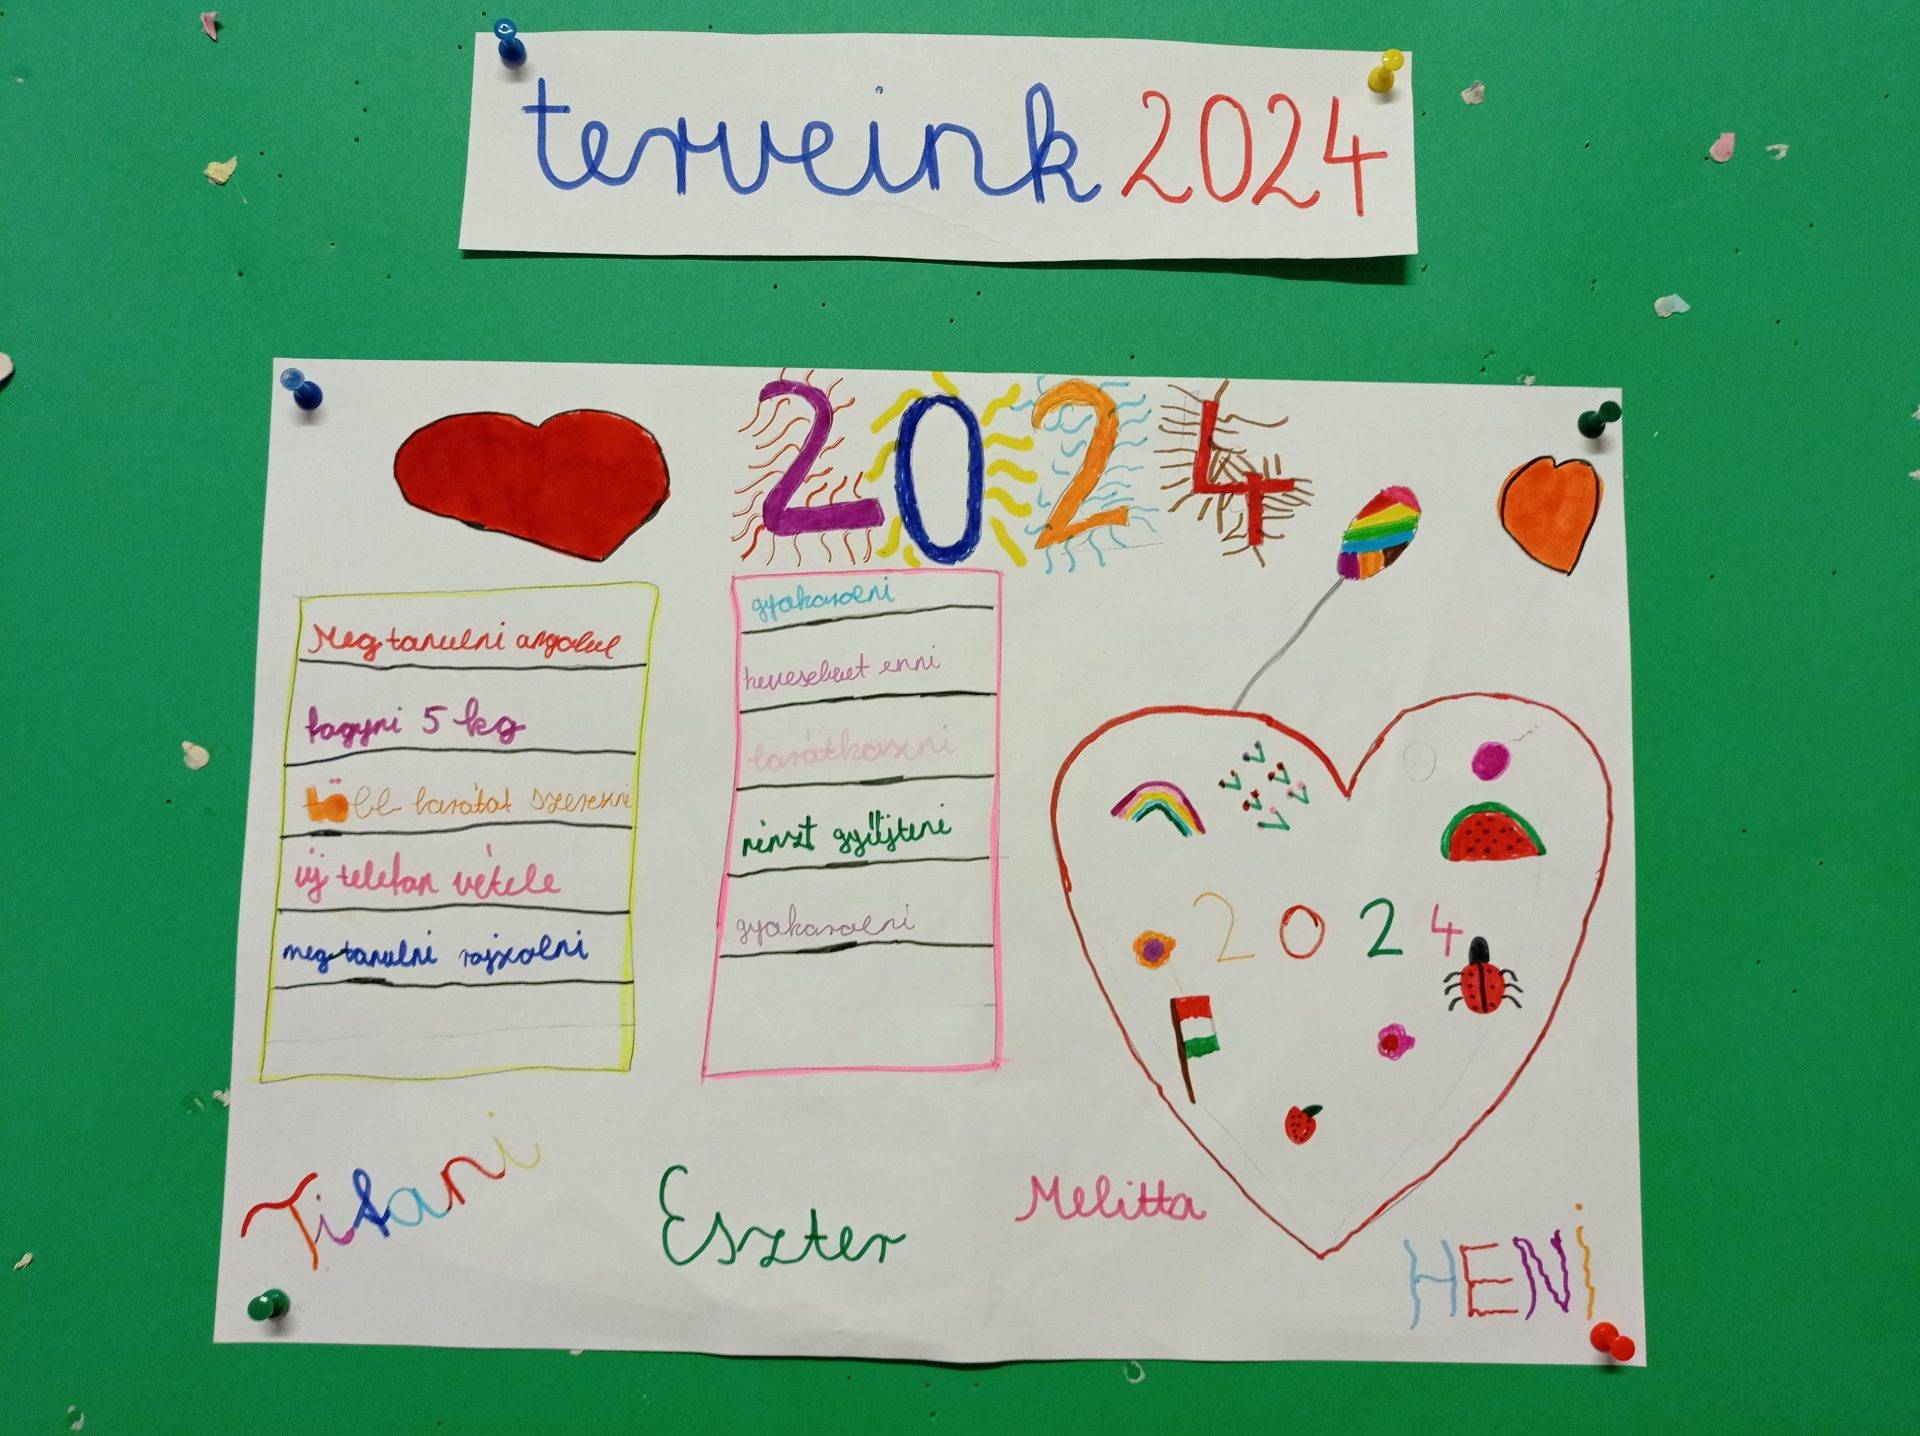 terveink 2024
2024
Megtanulni angolul
fogyni 5 kg
több barátot szerezni
új telefon vétele
megtanulni rajzolni
gyakorolni
kevesebbet enni
barátkozni
pénzt gyűjteni
gyakorolni
2024
Tifani
Eszter
Melitta
HENi